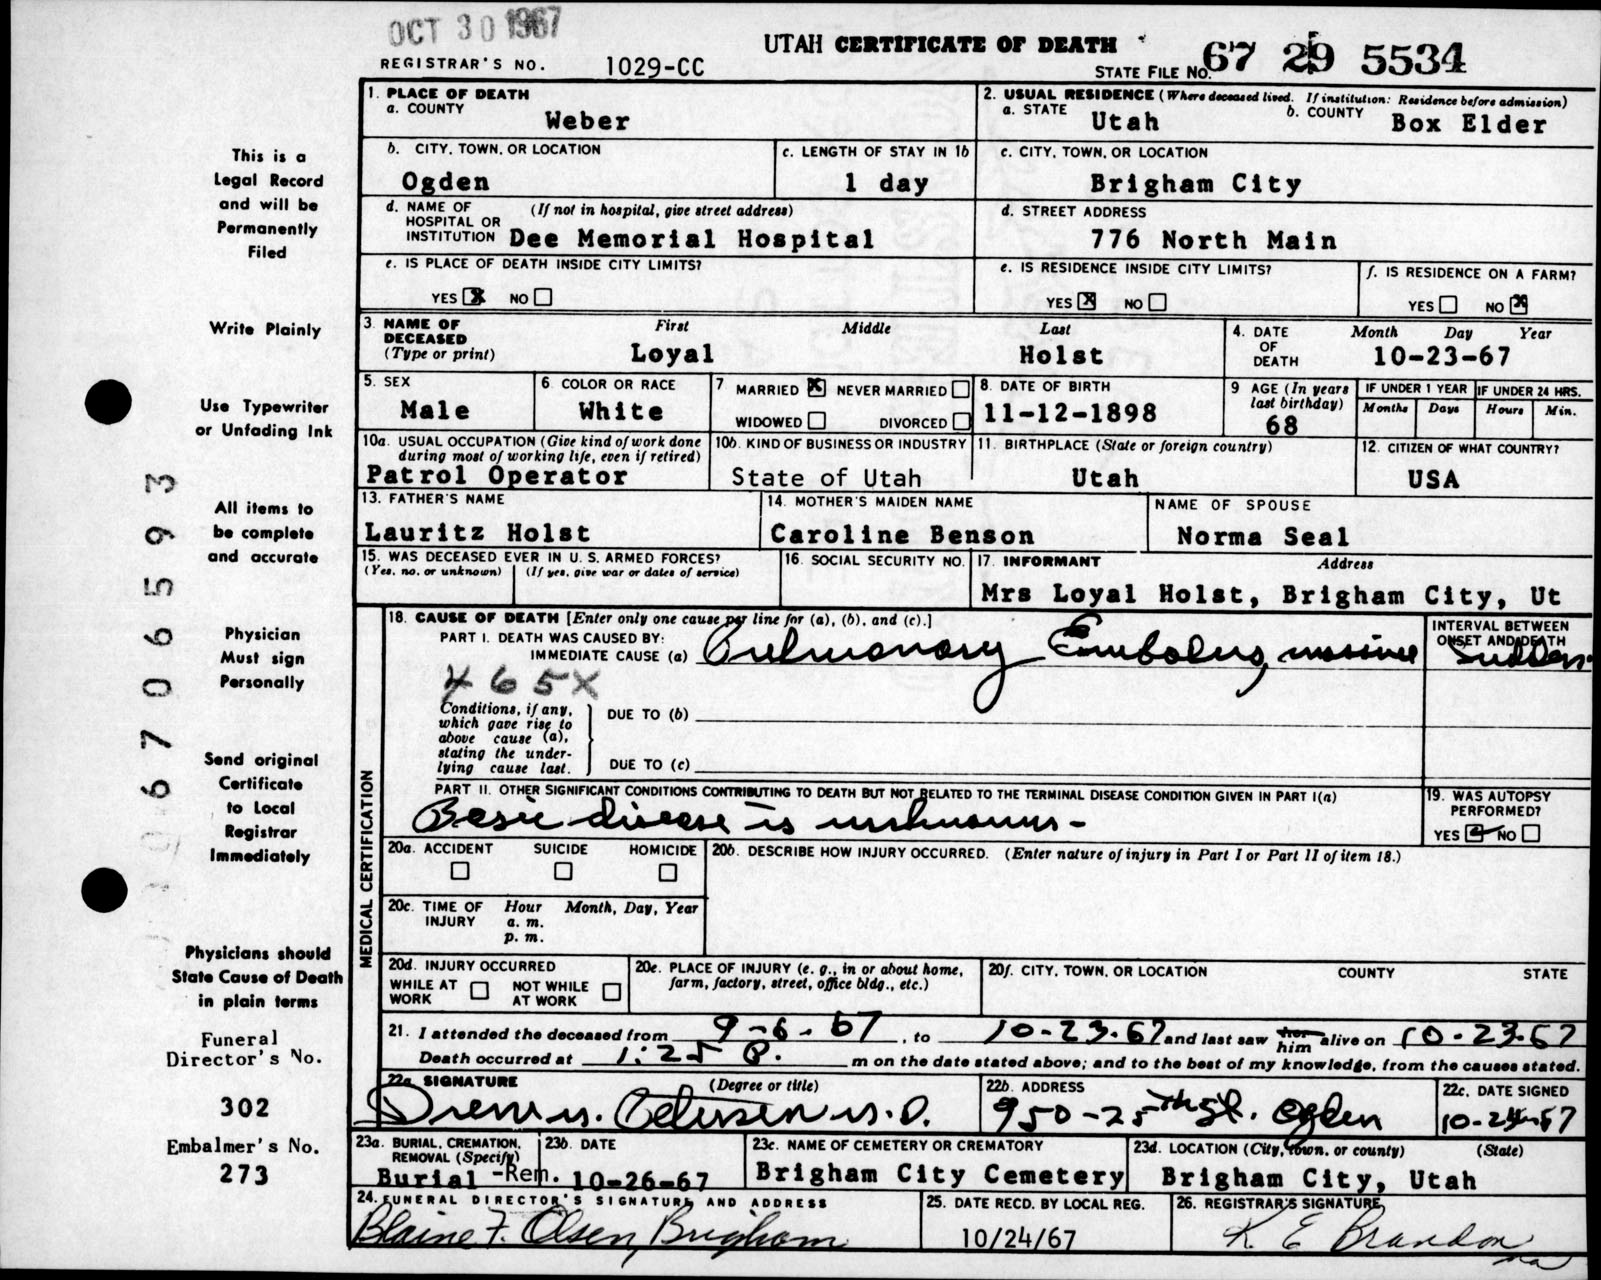 OCT 30 1967
UTAH CERTIFICATE OF DEATH
REGISTRAR'S NO. 1029-CC
STATE FILE NO. 67 29 5534
This is a
Legal Record
and will be
Permanently
Filed
Write Plainly
Use Typewriter
or Unfading Ink
All items to
be complete
and accurate
Physician
Must sign
Personally
Send original
Certificate
to Local
Registrar
Immediately
Physicians should
State Cause of Death
in plain terms
Funeral
Director's No.
302
Embalmer's No.
273
67065593
1. PLACE OF DEATH
a. COUNTY
Weber
2. USUAL RESIDENCE (Where deceased lived. If institution: Residence before admission)
a. STATE Utah b. COUNTY Box Elder
b. CITY, TOWN, OR LOCATION
Ogden
c. LENGTH OF STAY IN 1b
1 day
c. CITY, TOWN, OR LOCATION
Brigham City
d. NAME OF HOSPITAL OR INSTITUTION (If not in hospital, give street address)
Dee Memorial Hospital
d. STREET ADDRESS
776 North Main
e. IS PLACE OF DEATH INSIDE CITY LIMITS?
YES X NO
e. IS RESIDENCE INSIDE CITY LIMITS?
YES X NO
f. IS RESIDENCE ON A FARM?
YES NO X
3. NAME OF DECEASED (Type or print)
First Middle Last
Loyal Holst
4. DATE OF DEATH Month Day Year
10-23-67
5. SEX
Male
6. COLOR OR RACE
White
7. MARRIED X NEVER MARRIED
WIDOWED DIVORCED
8. DATE OF BIRTH
11-12-1898
9 AGE (In years last birthday)
68
IF UNDER 1 YEAR IF UNDER 24 HRS.
Months Days Hours Min.
10a. USUAL OCCUPATION (Give kind of work done during most of working life, even if retired)
Patrol Operator
10b. KIND OF BUSINESS OR INDUSTRY
State of Utah
11. BIRTHPLACE (State or foreign country)
Utah
12. CITIZEN OF WHAT COUNTRY?
USA
13. FATHER'S NAME
Lauritz Holst
14. MOTHER'S MAIDEN NAME
Caroline Benson
NAME OF SPOUSE
Norma Seal
15. WAS DECEASED EVER IN U.S. ARMED FORCES?
(Yes, no, or unknown) (If yes, give war or dates of service)
16. SOCIAL SECURITY NO.
17. INFORMANT Address
Mrs Loyal Holst, Brigham City, Ut
MEDICAL CERTIFICATION
18. CAUSE OF DEATH [Enter only one cause per line for (a), (b), and (c).]
PART I. DEATH WAS CAUSED BY:
IMMEDIATE CAUSE (a) Pulmonary Embolus, massive
INTERVAL BETWEEN ONSET AND DEATH
Sudden
465X
Conditions, if any, which gave rise to above cause (a), stating the underlying cause last.
DUE TO (b)
DUE TO (c)
PART II. OTHER SIGNIFICANT CONDITIONS CONTRIBUTING TO DEATH BUT NOT RELATED TO THE TERMINAL DISEASE CONDITION GIVEN IN PART I(a)
Basic disease is unknown -
19. WAS AUTOPSY PERFORMED?
YES NO
20a. ACCIDENT SUICIDE HOMICIDE
20b. DESCRIBE HOW INJURY OCCURRED. (Enter nature of injury in Part I or Part II of item 18.)
20c. TIME OF INJURY Hour Month, Day, Year
a. m.
p. m.
20d. INJURY OCCURRED
WHILE AT WORK NOT WHILE AT WORK
20e. PLACE OF INJURY (e. g., in or about home, farm, factory, street, office bldg., etc.)
20f. CITY, TOWN, OR LOCATION COUNTY STATE
21. I attended the deceased from 9-6-67, to 10-23-67 and last saw her him alive on 10-23-67
Death occurred at 1:25 P. m on the date stated above; and to the best of my knowledge, from the causes stated.
22a. SIGNATURE (Degree or title)
Drew M. Petersen M.D.
22b. ADDRESS
950-25th St. Ogden
22c. DATE SIGNED
10-24-67
23a. BURIAL, CREMATION, REMOVAL (Specify)
Burial -Rem.
23b. DATE
10-26-67
23c. NAME OF CEMETERY OR CREMATORY
Brigham City Cemetery
23d. LOCATION (City, town, or county) (State)
Brigham City, Utah
24. FUNERAL DIRECTOR'S SIGNATURE AND ADDRESS
Blaine F. Olsen, Brigham
25. DATE RECD. BY LOCAL REG.
10/24/67
26. REGISTRAR'S SIGNATURE
K E Brandon